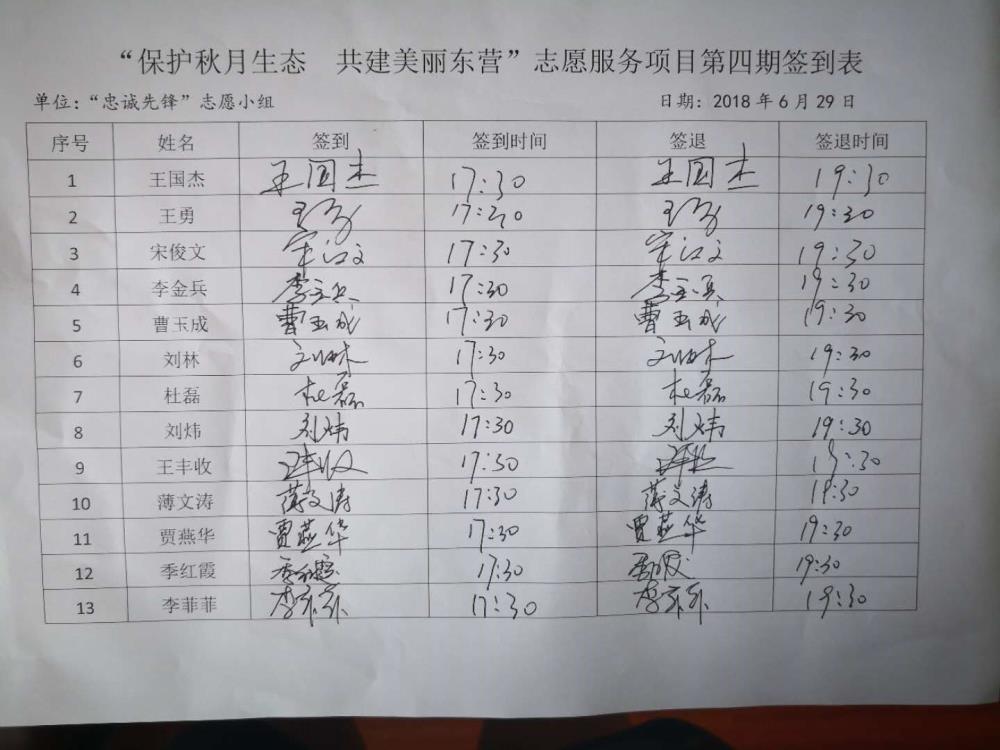 “保护秋月生态　共建美丽东营”志愿服务项目第四期签到表
单位：“忠诚先锋”志愿小组 日期：2018 年 6 月 29 日
序号 姓名 签到 签到时间 签退 签退时间
1 王国杰 王国杰 17:30 王国杰 19:30
2 王勇 王勇 17:30 王勇 19:30
3 宋俊文 宋俊文 17:30 宋俊文 19:30
4 李金兵 李金兵 17:30 李金兵 19:30
5 曹玉成 曹玉成 17:30 曹玉成 19:30
6 刘林 刘林 17:30 刘林 19:30
7 杜磊 杜磊 17:30 杜磊 19:30
8 刘炜 刘炜 17:30 刘炜 19:30
9 王丰收 王丰收 17:30 王丰收 19:30
10 薄文涛 薄文涛 17:30 薄文涛 19:30
11 贾燕华 贾燕华 17:30 贾燕华 19:30
12 季红霞 季红霞 17:30 季红霞 19:30
13 李菲菲 李菲菲 17:30 李菲菲 19:30